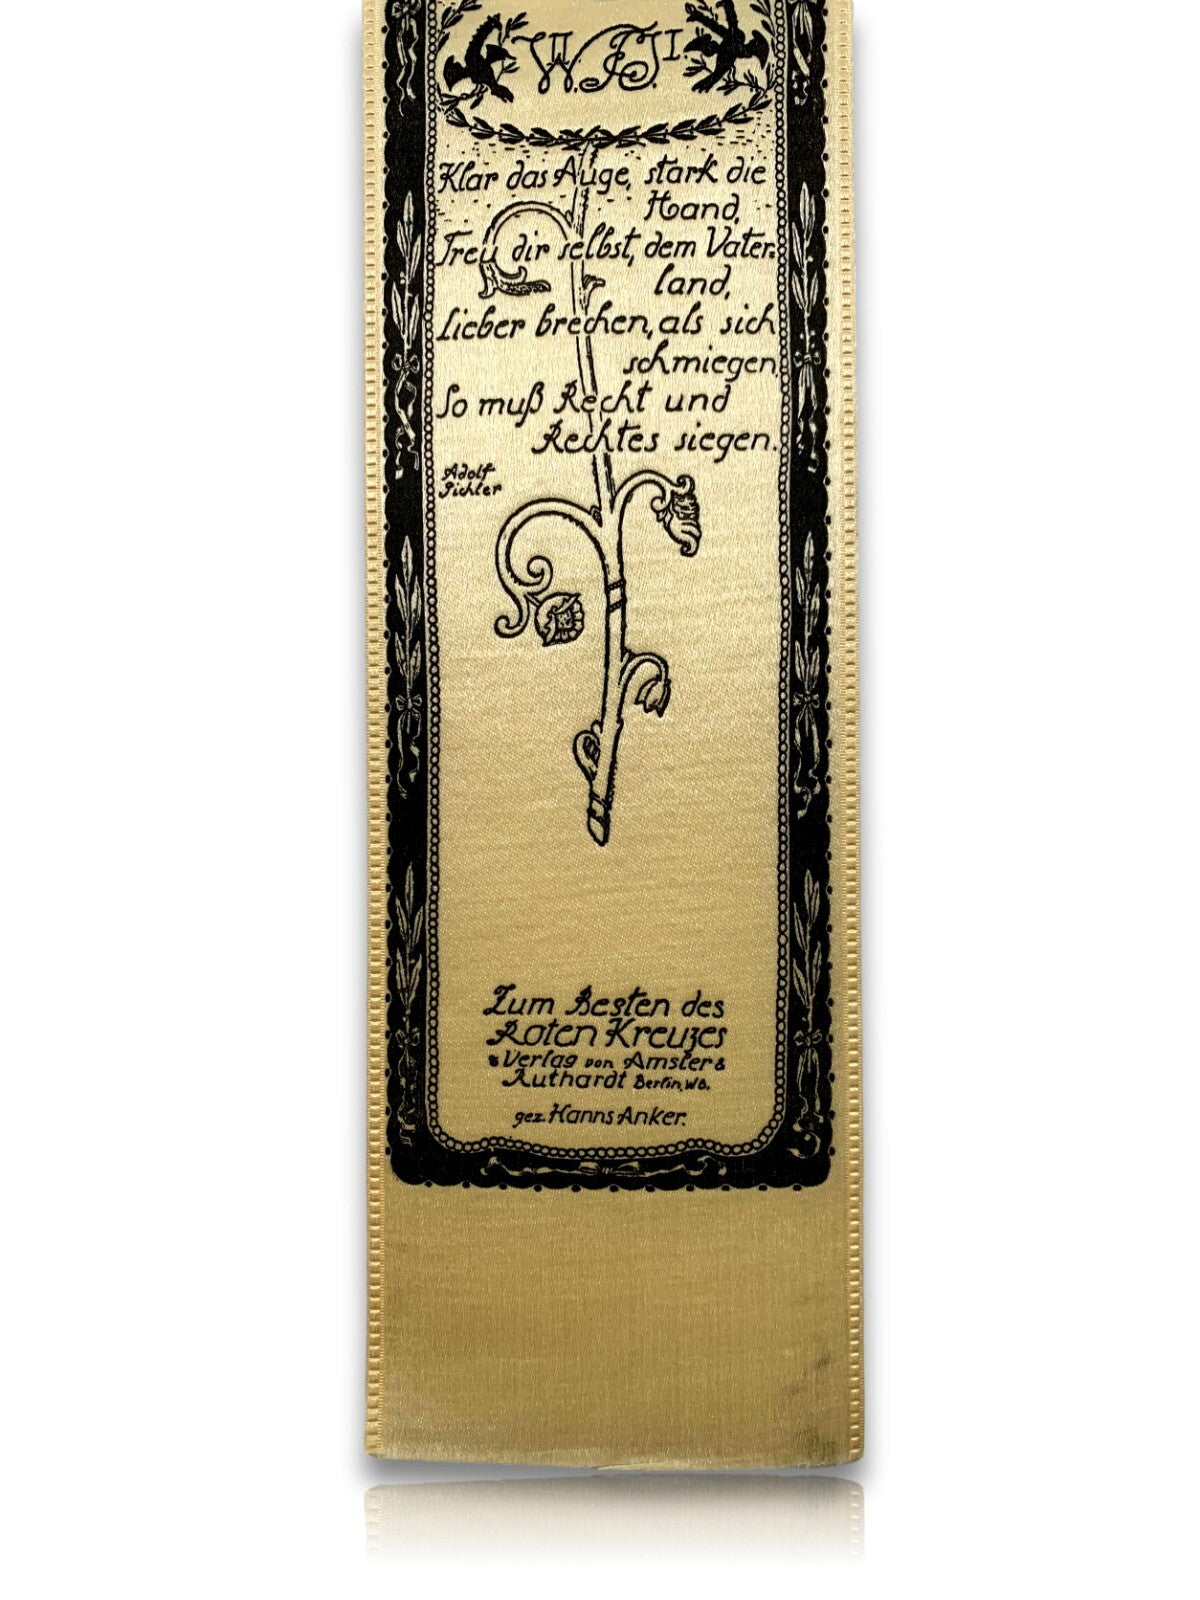 W. F. J. I.
Klar das Auge, stark die
Hand,
Treu dir selbst, dem Vater-
land,
Lieber brechen, als sich
schmiegen,
So muß Recht und
Rechtes siegen.
Adolf
Pichler
Zum Besten des
Roten Kreuzes
Verlag von Amsler &
Ruthardt Berlin, W 8.
gez. Hanns Anker.